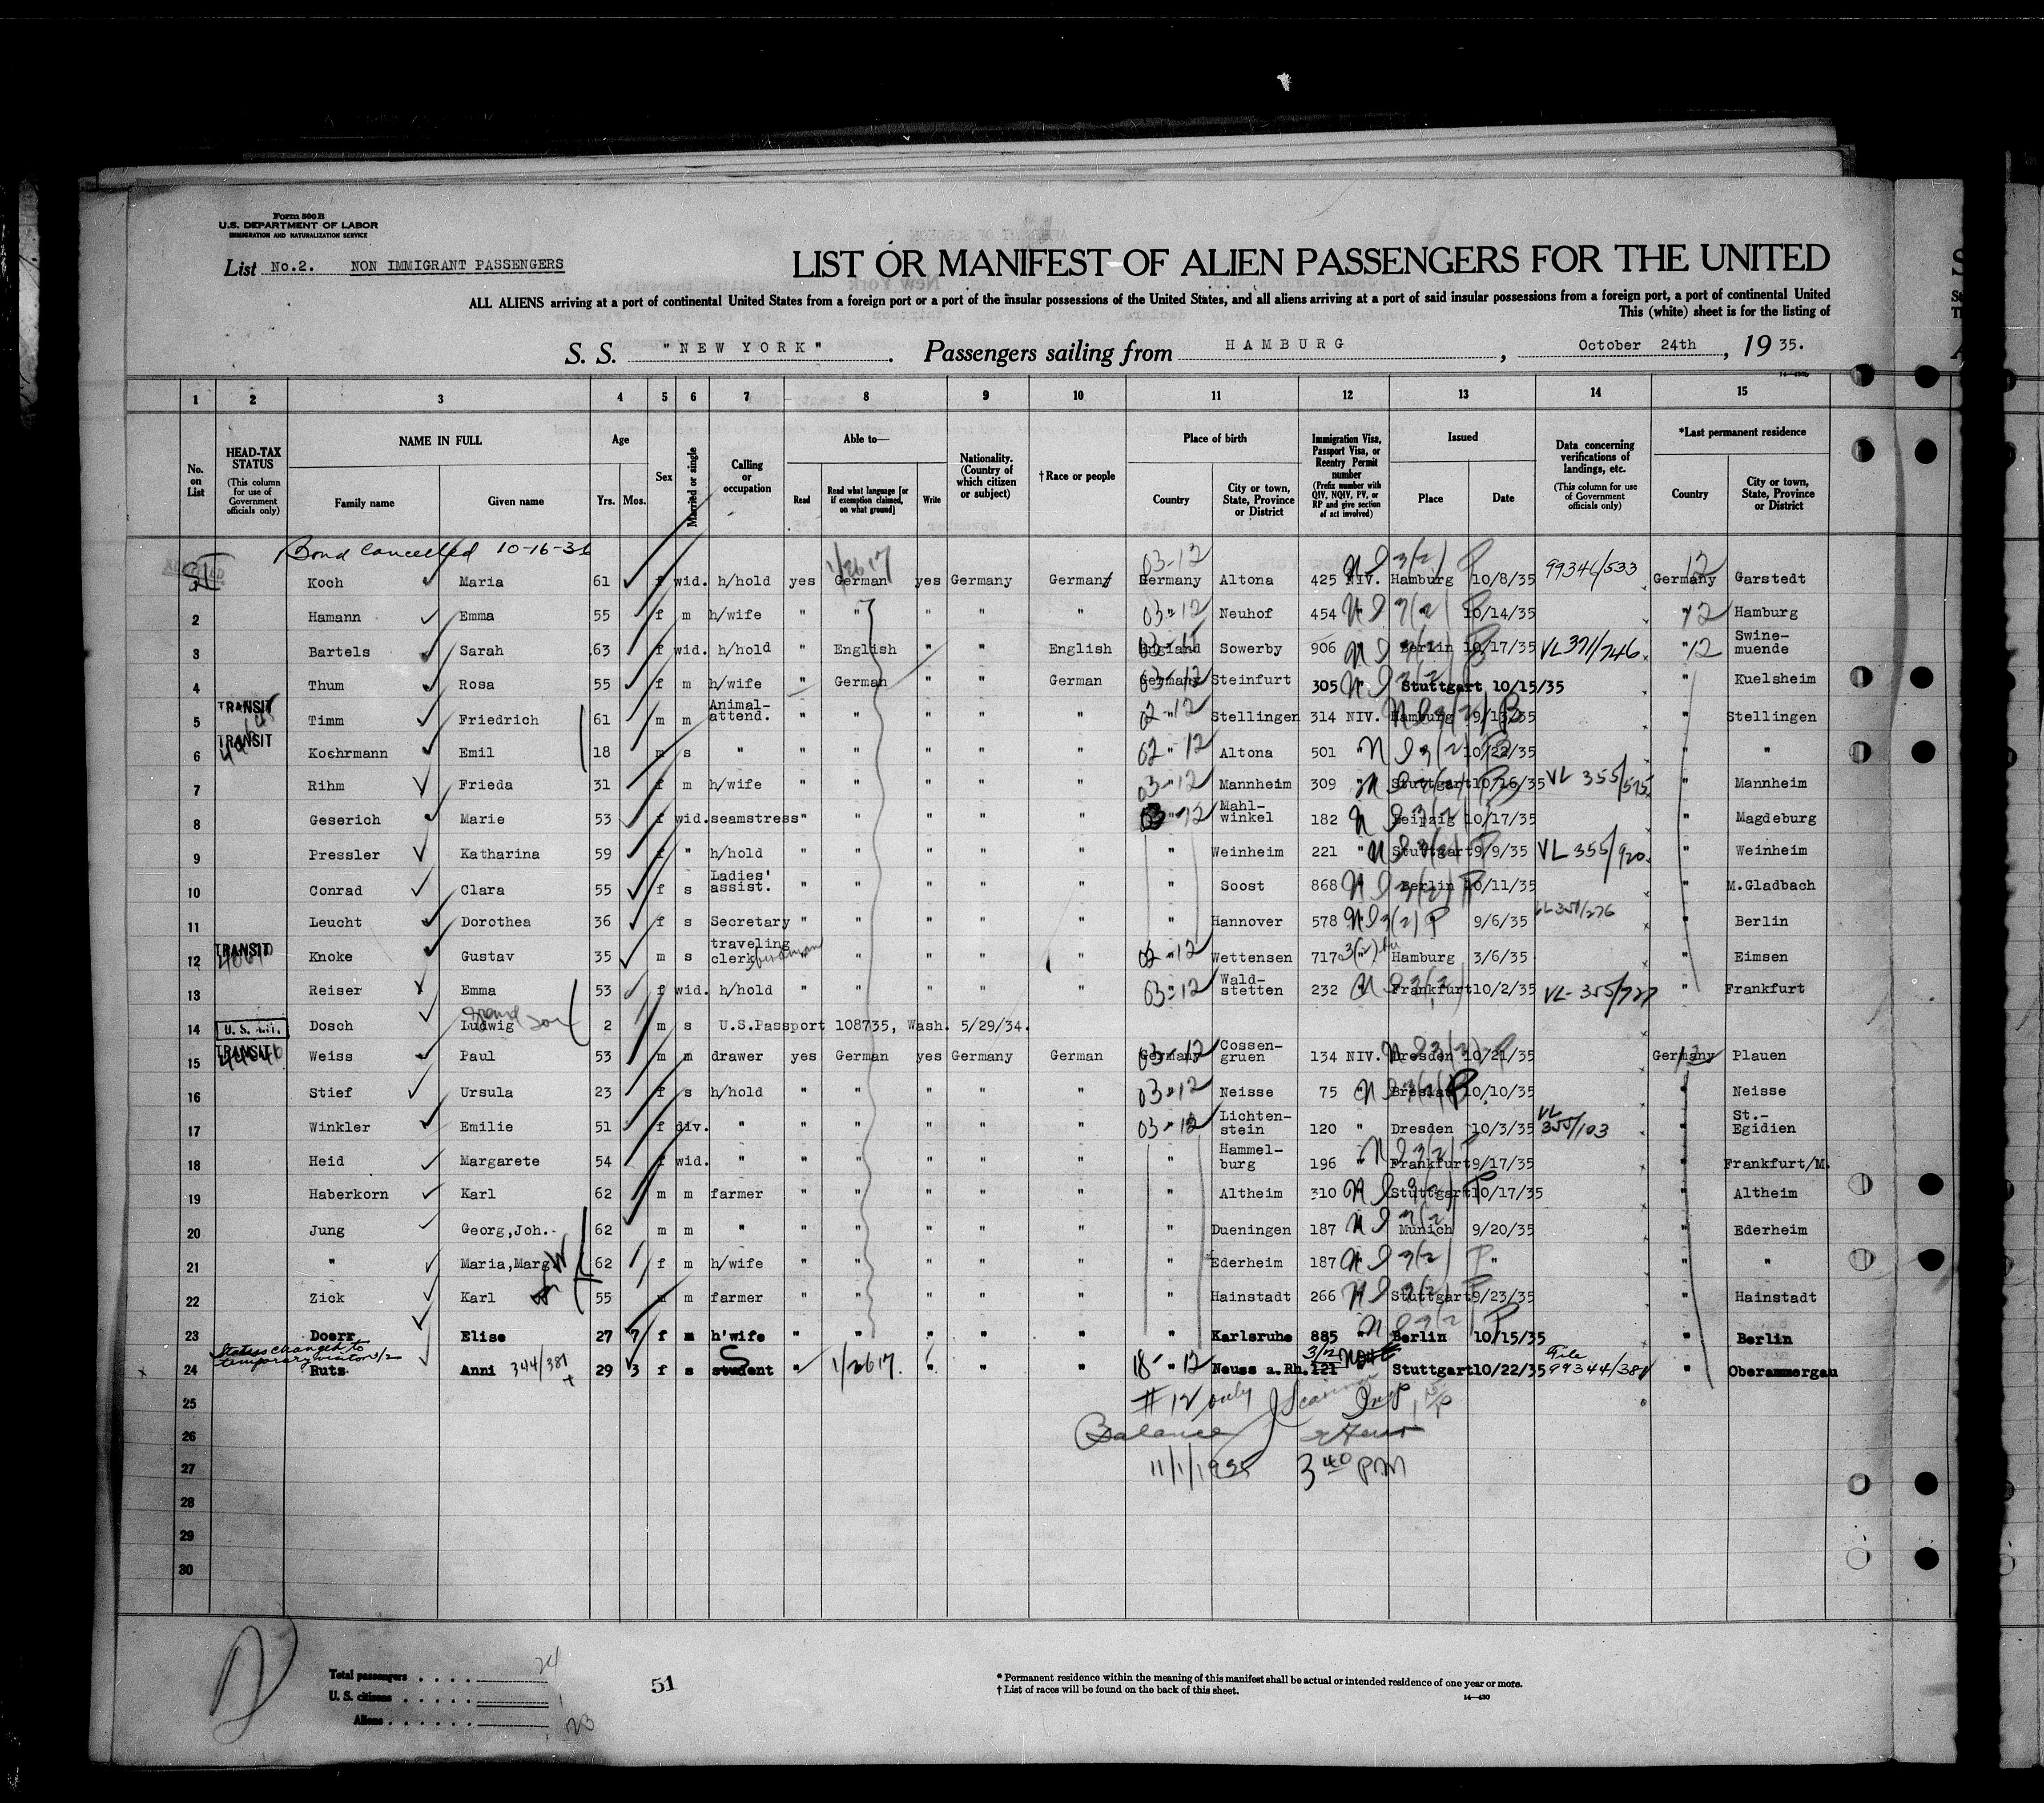 Form 500 B
U.S. DEPARTMENT OF LABOR
IMMIGRATION AND NATURALIZATION SERVICE
List No.2. NON IMMIGRANT PASSENGERS
LIST OR MANIFEST OF ALIEN PASSENGERS FOR THE UNITED
ALL ALIENS arriving at a port of continental United States from a foreign port or a port of the insular possessions of the United States, and all aliens arriving at a port of said insular possessions from a foreign port, a port of continental United
This (white) sheet is for the listing of
S. S. "NEW YORK". Passengers sailing from HAMBURG, October 24th, 19 35.
1 2 3 4 5 6 7 8 9 10 11 12 13 14 15
No. on List
HEAD-TAX STATUS (This column for use of Government officials only)
NAME IN FULL Family name Given name
Age Yrs. Mos.
Sex
Married or single
Calling or occupation
Able to— Read Read what language [or if exemption claimed, on what ground] Write
Nationality. (Country of which citizen or subject)
†Race or people
Place of birth Country City or town, State, Province or District
Immigration Visa, Passport Visa, or Reentry Permit number (Prefix number with QIV, NQIV, PV, or RP and give section of act involved)
Issued Place Date
Data concerning verifications of landings, etc. (This column for use of Government officials only)
*Last permanent residence Country City or town, State, Province or District
Bond Cancelled 10-16-36
Koch Maria 61 f wid. h/hold yes German yes Germany German Germany Altona 425 NIV. Hamburg 10/8/35 99346/533 Germany Garstedt
2 Hamann Emma 55 f m h/wife " " " " " 03-12 Neuhof 454 10/14/35 " Hamburg
3 Bartels Sarah 63 f wid. h/hold " English " " English England Sowerby 906 Berlin 10/17/35 VL371/746 " Swine-muende
4 Thum Rosa 55 f m h/wife " German " " German Germany Steinfurt 305 Stuttgart 10/15/35 " Kuelsheim
5 TRANSIT Timm Friedrich 61 m m Animal-attend. " " " " " 02-12 Stellingen 314 NIV. Hamburg 9/13/35 " Stellingen
6 TRANSIT Kochrmann Emil 18 m s " " " " " " 02-12 Altona 501 10/22/35 " "
7 Rihm Frieda 31 f m h/wife " " " " " 03-12 Mannheim 309 " Stuttgart 10/16/35 VL 355/575 " Mannheim
8 Geserich Marie 53 f wid. seamstress " " " " " 03-12 Mahl-winkel 182 Leipzig 10/17/35 " Magdeburg
9 Pressler Katharina 59 f " h/hold " " " " " " Weinheim 221 " Stuttgart 9/9/35 VL 355/920 " Weinheim
10 Conrad Clara 55 f s Ladies' assist. " " " " " " Soost 868 Berlin 10/11/35 " M.Gladbach
11 Leucht Dorothea 36 f s Secretary " " " " " " Hannover 578 " 9/6/35 VL351/276 " Berlin
12 TRANSIT Knoke Gustav 35 m s traveling clerk " " " " " 02-12 Wettensen 717 " Hamburg 3/6/35 " Eimsen
13 Reiser Emma 53 f wid. h/hold " " " " " 03-12 Wald-stetten 232 Frankfurt 10/2/35 VL-355/727 " Frankfurt
grand son
14 Dosch Ludwig 2 m s U.S.Passport 108735, Wash. 5/29/34.
15 TRANSIT Weiss Paul 53 m m drawer yes German yes Germany German Germany Cossen-gruen 134 NIV. Dresden 10/21/35 Germany Plauen
16 Stief Ursula 23 f s h/hold " " " " " 03-12 Neisse 75 Breslau 10/10/35 " Neisse
17 Winkler Emilie 51 f div. " " " " " " 03-12 Lichten-stein 120 " Dresden 10/3/35 VL 355/103 " St.-Egidien
18 Heid Margarete 54 f wid. " " " " " " " Hammel-burg 196 " Frankfurt 9/17/35 " Frankfurt/M.
19 Haberkorn Karl 62 m m farmer " " " " " " Altheim 310 Stuttgart 10/17/35 " Altheim
20 Jung Georg,Joh. 62 m m " " " " " " " Dueningen 187 Munich 9/20/35 " Ederheim
21 " Maria,Marg. W 62 f m h/wife " " " " " " Ederheim 187 " " "
22 Zick Karl 55 m m farmer " " " " " " Hainstadt 266 Stuttgart 9/23/35 " Hainstadt
23 Doerr Elise 27 7 f m h'wife " " " " " " Karlsruhe 885 " Berlin 10/15/35 " Berlin
Status changed to temporary visitor 3/2
24 Rutz Anni 344/381 29 3 f s student " 1/2617. " " " 18-12 Neuss a.Rh. 121 Stuttgart 10/22/35 File 99344/381 " Oberammergau
25 #12 only
26 Balance
27 11/1/1935 3 40 PM
28
29
30
Total passengers 24
U. S. citizens 1
Aliens 23
51
* Permanent residence within the meaning of this manifest shall be actual or intended residence of one year or more.
† List of races will be found on the back of this sheet.
14—430